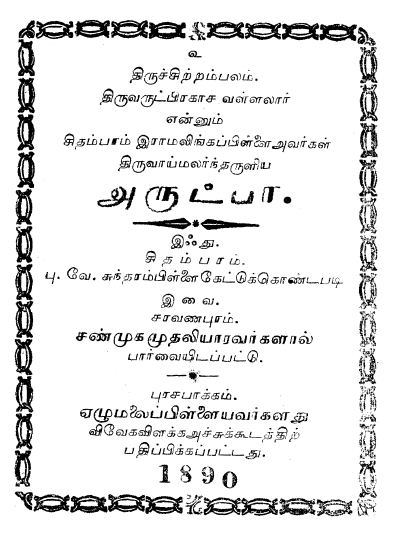 உ
திருச்சிற்றம்பலம்.
திருவருட்பிரகாச வள்ளலார்
என்னும்
சிதம்பரம் இராமலிங்கப்பிள்ளைஅவர்கள்
திருவாய்மலர்ந்தருளிய
அருட்பா.
இஃது.
சிதம்பரம்.
பு. வே. சுந்தரம்பிள்ளைகேட்டுக்கொண்டபடி
இவை.
சரவணபுரம்.
சண்முகமுதலியாரவர்களால்
பார்வையிடப்பட்டு.
புரசபாக்கம்.
ஏழுமலைப்பிள்ளையவர்களது
விவேகவிளக்கஅச்சுக்கூடத்திற்
பதிப்பிக்கப்பட்டது.
1890